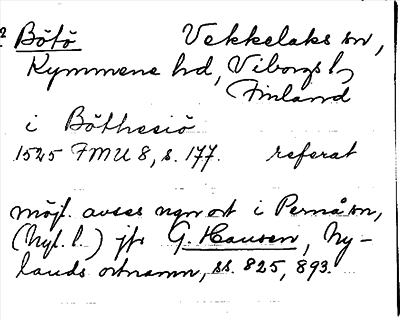 Bötö Vekkelaks sn,
Kymmene hd, Viborgs l,
Finland
i Böthesiö
1525 FMU 8, s. 177. referat
möjl. avses ngn ort i Pernå sn,
(Nyl. l.) jfr G. Hausen, Ny-
lands ortnamn, ss. 825, 893.